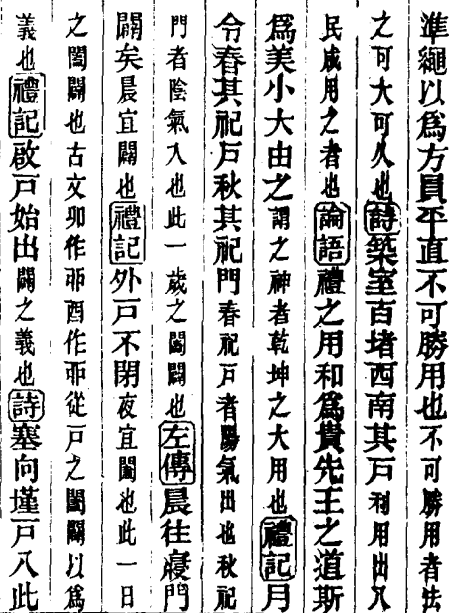 準繩以爲方員平直不可勝用也不可勝用者法
之可大可久也詩築室百堵西南其戶利用出入
民咸用之者也論語禮之用和爲貴先王之道斯
爲美小大由之謂之神者乾坤之大用也禮記月
令春其祀戶秋其祀門春祀戶者陽氣出也秋祀
門者陰氣入也此一歲之闔闢也左傳晨往寢門
闢矣晨宜闢也禮記外戶不閉夜宜闔也此一日
之闔闢也古文丣作戼酉作丣從戶之闔闢以爲
義也禮記啟戶始出闢之義也詩塞向墐戶入此